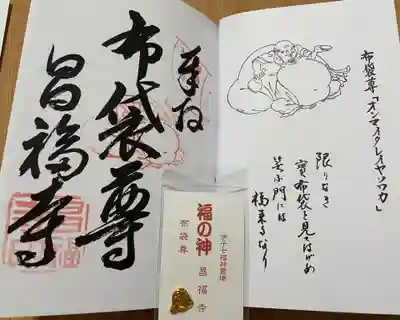 布袋尊「オンマイタレイヤソワカ」
限りなき
寳布袋を見てはげめ
笑ふ門には
福来るなり
奉拝
布袋尊
昌福寺
福の神
布袋尊
昌福寺